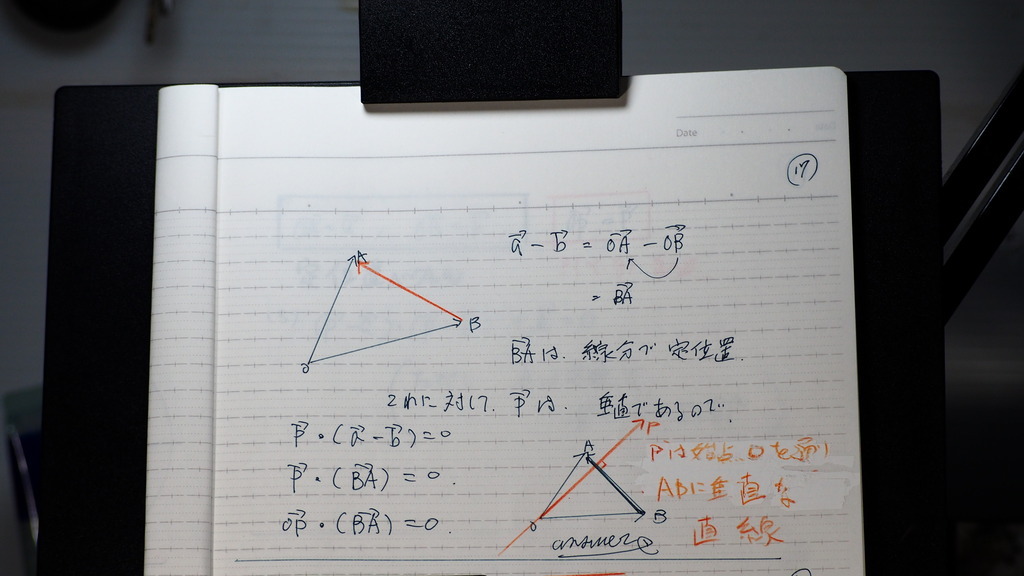 Date
17
a⃗ - b⃗ = OA⃗ - OB⃗
= BA⃗
A
B
O
BA⃗は、線分で定位置.
これに対して、P⃗は、垂直であるので、
P⃗・(a⃗-b⃗)=0
P⃗・(BA⃗)=0.
OP⃗・(BA⃗)=0.
P
A
O
B
answer
Pは始点Oを通り
ABに垂直な
直線